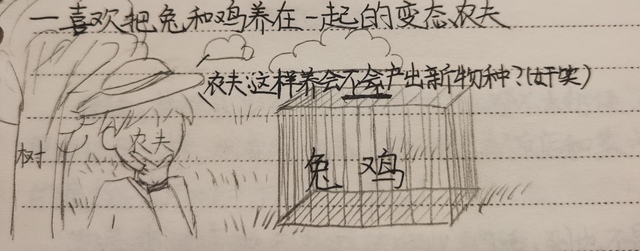 一喜欢把兔和鸡养在一起的变态农夫
农夫:这样养会不会产出新物种?(奸笑)
农夫
树
兔 鸡